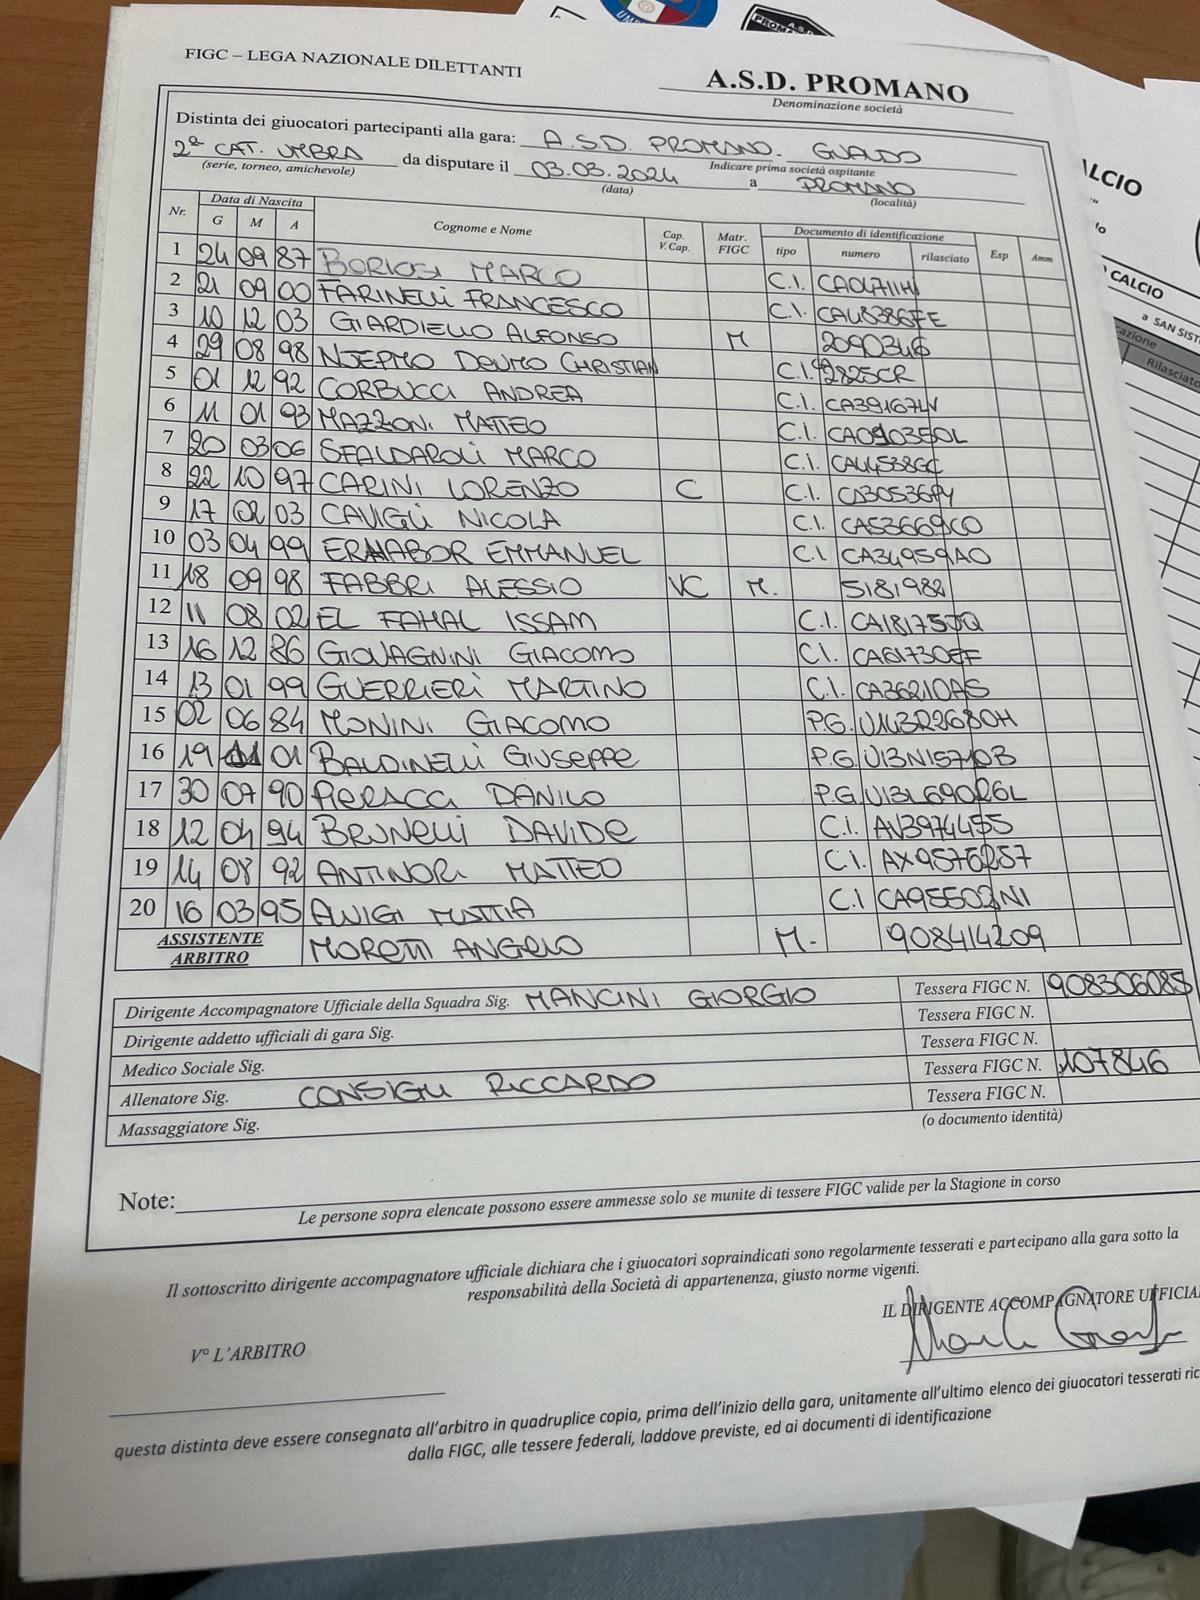 FIGC – LEGA NAZIONALE DILETTANTI
A.S.D. PROMANO
Denominazione società
Distinta dei giuocatori partecipanti alla gara: A.S.D. PROMANO - GUALDO
Indicare prima società ospitante
2ª CAT. UMBRA da disputare il 03.03.2024 a PROMANO
(serie, torneo, amichevole) (data) (località)
Nr. Data di Nascita Cognome e Nome Cap. V.Cap. Matr. FIGC Documento di identificazione Esp Amm
G M A tipo numero rilasciato
1 24 09 87 BORIOSI MARCO C.I.
2 21 09 00 FARINELLI FRANCESCO C.I. CA48386FE
3 10 12 03 GIARDIELLO ALFONSO M 2090346
4 29 08 98 CHRISTIAN C.I.
5 01 12 92 CORBUCCI ANDREA C.I. CA39167LV
6 11 01 93 MAZZONI MATTEO C.I. CA09035OL
7 20 03 06 SFALDAROLI MARCO C.I. CA44538GC
8 22 10 97 CARINI LORENZO C C.I.
9 17 02 03 CAVIGLI NICOLA C.I. CA53669CO
10 03 04 99 ERHABOR EMMANUEL C.I. CA34959AO
11 18 09 98 FABBRI ALESSIO VC M. 5181982
12 11 08 02 EL FAHAL ISSAM C.I. CA18175JQ
13 16 12 86 GIOVAGNINI GIACOMO C.I. CA61730EF
14 13 01 99 GUERRIERI MARTINO C.I. CA36210AS
15 02 06 84 MONINI GIACOMO P.G. U143R2680H
16 19 01 BALDINELLI GIUSEPPE P.G. U13N15710B
17 30 07 90 PIERACCI DANILO P.G. U13L69026L
18 12 04 94 BRUNELLI DAVIDE C.I. AV3974455
19 14 08 92 ANTINORI MATTEO C.I. AX9576257
20 16 03 95 ALVIGI MATTIA C.I CA95502NI
ASSISTENTE ARBITRO MORETTI ANGELO M. 908414209
Dirigente Accompagnatore Ufficiale della Squadra Sig. MANCINI GIORGIO Tessera FIGC N. 908306085
Dirigente addetto ufficiali di gara Sig. Tessera FIGC N.
Medico Sociale Sig. Tessera FIGC N.
Allenatore Sig. CONSIGLI RICCARDO Tessera FIGC N. 107846
Massaggiatore Sig. Tessera FIGC N.
(o documento identità)
Note:
Le persone sopra elencate possono essere ammesse solo se munite di tessere FIGC valide per la Stagione in corso
Il sottoscritto dirigente accompagnatore ufficiale dichiara che i giuocatori sopraindicati sono regolarmente tesserati e partecipano alla gara sotto la
responsabilità della Società di appartenenza, giusto norme vigenti.
IL DIRIGENTE ACCOMPAGNATORE UFFICIA
V° L'ARBITRO
questa distinta deve essere consegnata all'arbitro in quadruplice copia, prima dell'inizio della gara, unitamente all'ultimo elenco dei giuocatori tesserati ric
dalla FIGC, alle tessere federali, laddove previste, ed ai documenti di identificazione
LCIO
CALCIO
a SAN SIST
Rilasciato